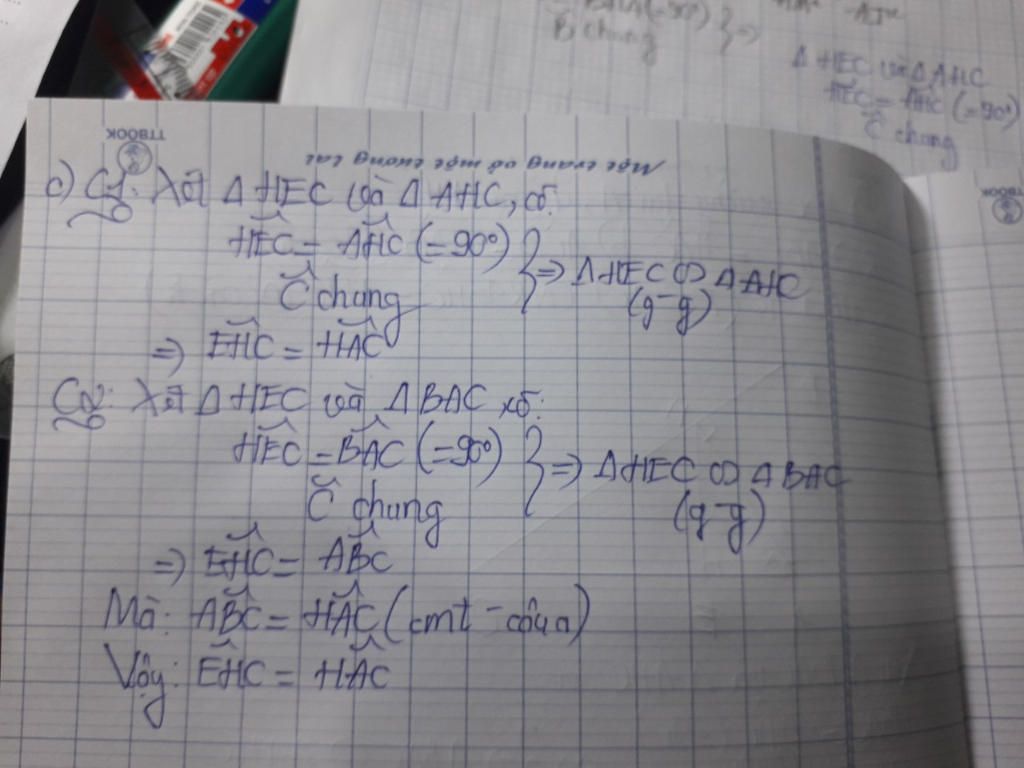 BHA (=90°)
B̂ chung
} =>
Δ HEC và Δ AHC
HEC = AHC (=90°)
Ĉ chung
TTBOOK
TTBOOK
Một trang vở một tương lai
c) C1: Xét Δ HEC và Δ AHC, có:
HEC = AHC (= 90°)
Ĉ chung
} => Δ HEC ∽ Δ AHC
(g-g)
=> EHC = HAC
C2: Xét Δ HEC và Δ BAC, có:
HEC = BAC (=90°)
Ĉ chung
} => Δ HEC ∽ Δ BAC
(g-g)
=> EHC = ABC
Mà: ABC = HAC (cmt - câu a)
Vậy: EHC = HAC